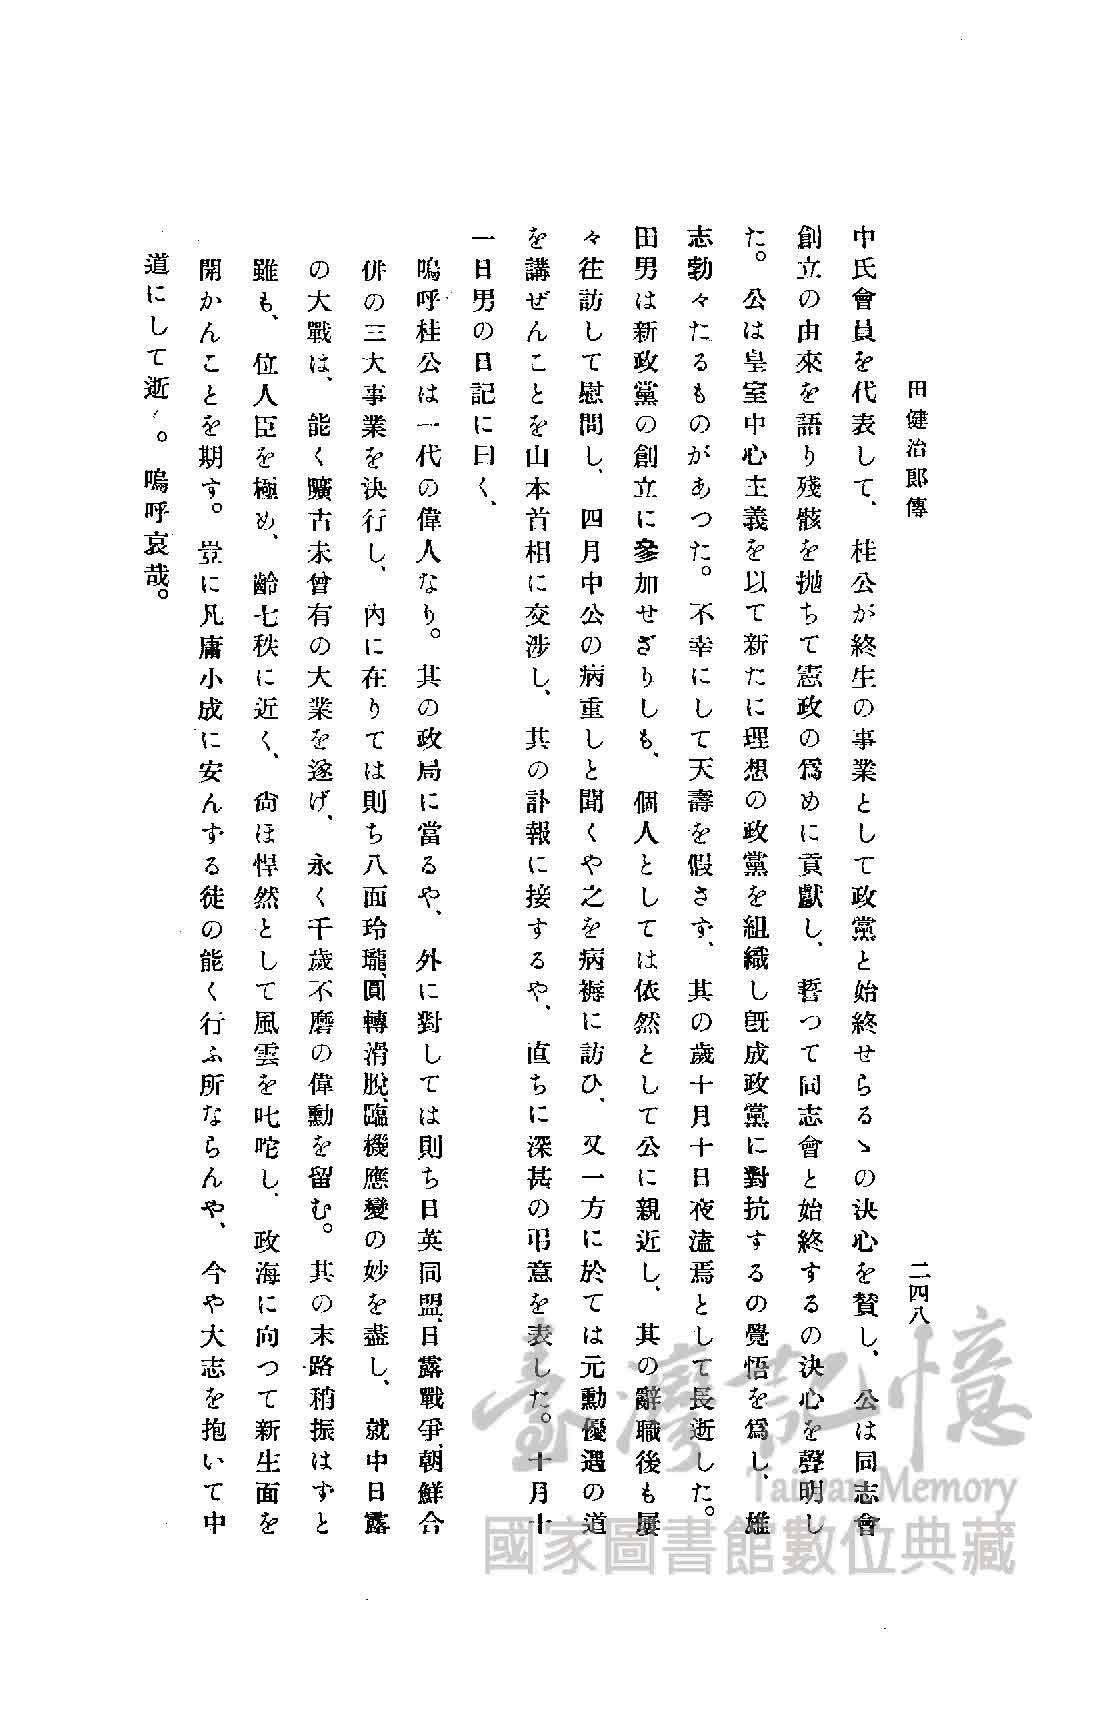 田健治郎傳
二四八
中氏會員を代表して、桂公が終生の事業として政黨と始終せらるゝの決心を賛し、公は同志會
創立の由來を語り殘骸を拋ちて憲政の爲めに貢獻し、誓つて同志會と始終するの決心を聲明し
た。公は皇室中心主義を以て新たに理想の政黨を組織し既成政黨に對抗するの覺悟を爲し、雄
志勃々たるものがあつた。不幸にして天壽を假さず、其の歲十月十日夜溘焉として長逝した。
田男は新政黨の創立に參加せざりしも、個人としては依然として公に親近し、其の辭職後も屢
々往訪して慰問し、四月中公の病重しと聞くや之を病褥に訪ひ、又一方に於ては元勳優遇の道
を講ぜんことを山本首相に交涉し、其の訃報に接するや、直ちに深甚の弔意を表した。十月十
一日男の日記に曰く、
嗚呼桂公は一代の偉人なり。其の政局に當るや、外に對しては則ち日英同盟、日露戰爭、朝鮮合
併の三大事業を決行し、內に在りては則ち八面玲瓏、圓轉滑脫、臨機應變の妙を盡し、就中日露
の大戰は、能く曠古未曾有の大業を遂げ、永く千歲不磨の偉勳を留む。其の末路稍振はずと
雖も、位人臣を極め、齡七秩に近く、尙ほ悍然として風雲を叱咤し、政海に向つて新生面を
開かんことを期す。豈に凡庸小成に安んずる徒の能く行ふ所ならんや、今や大志を抱いて中
道にして逝く。嗚呼哀哉。
臺灣記憶
Taiwan Memory
國家圖書館數位典藏